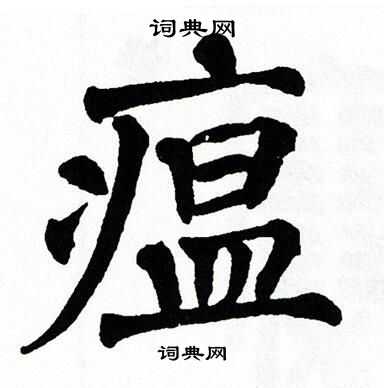 词典网
瘟
词典网